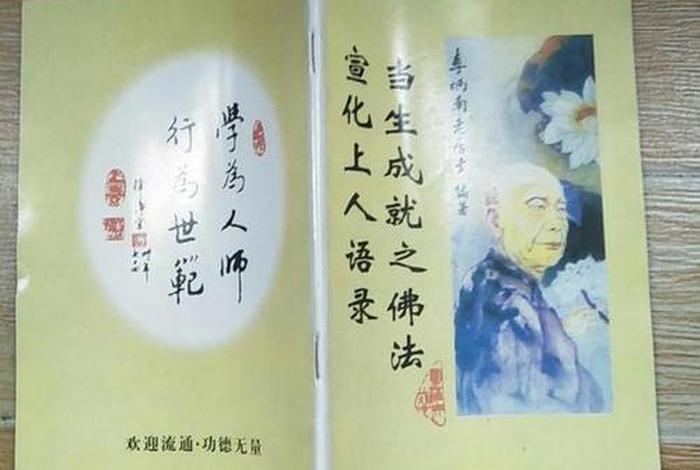 当生成就之佛法
宣化上人语录
李炳南老居士编著
學為人师
行為世範
欢迎流通·功德无量